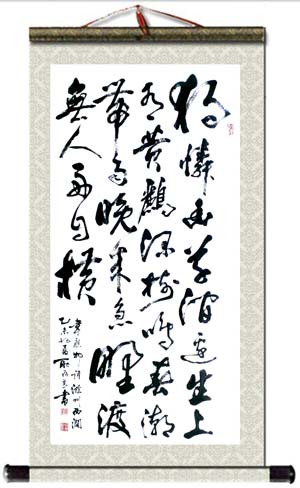 独憐幽草澗邊生上
有黄鸝深樹鳴春潮
帶雨晚来急野渡
無人舟自横
韋應物詩滁州西澗
乙未 夏 書